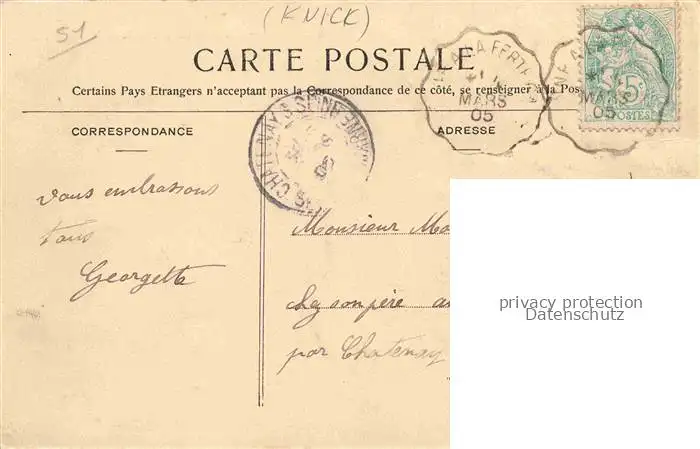 51
(KNICK)
CARTE POSTALE
Certains Pays Etrangers n'acceptent pas la Correspondance de ce côté, se renseigner à la Pos
CORRESPONDANCE
ADRESSE
MARS
05
MARS
05
5c
POSTES
Vous embrassons
tous
Georgette
Monsieur
chez son père
par Chatenay
privacy protection
Datenschutz